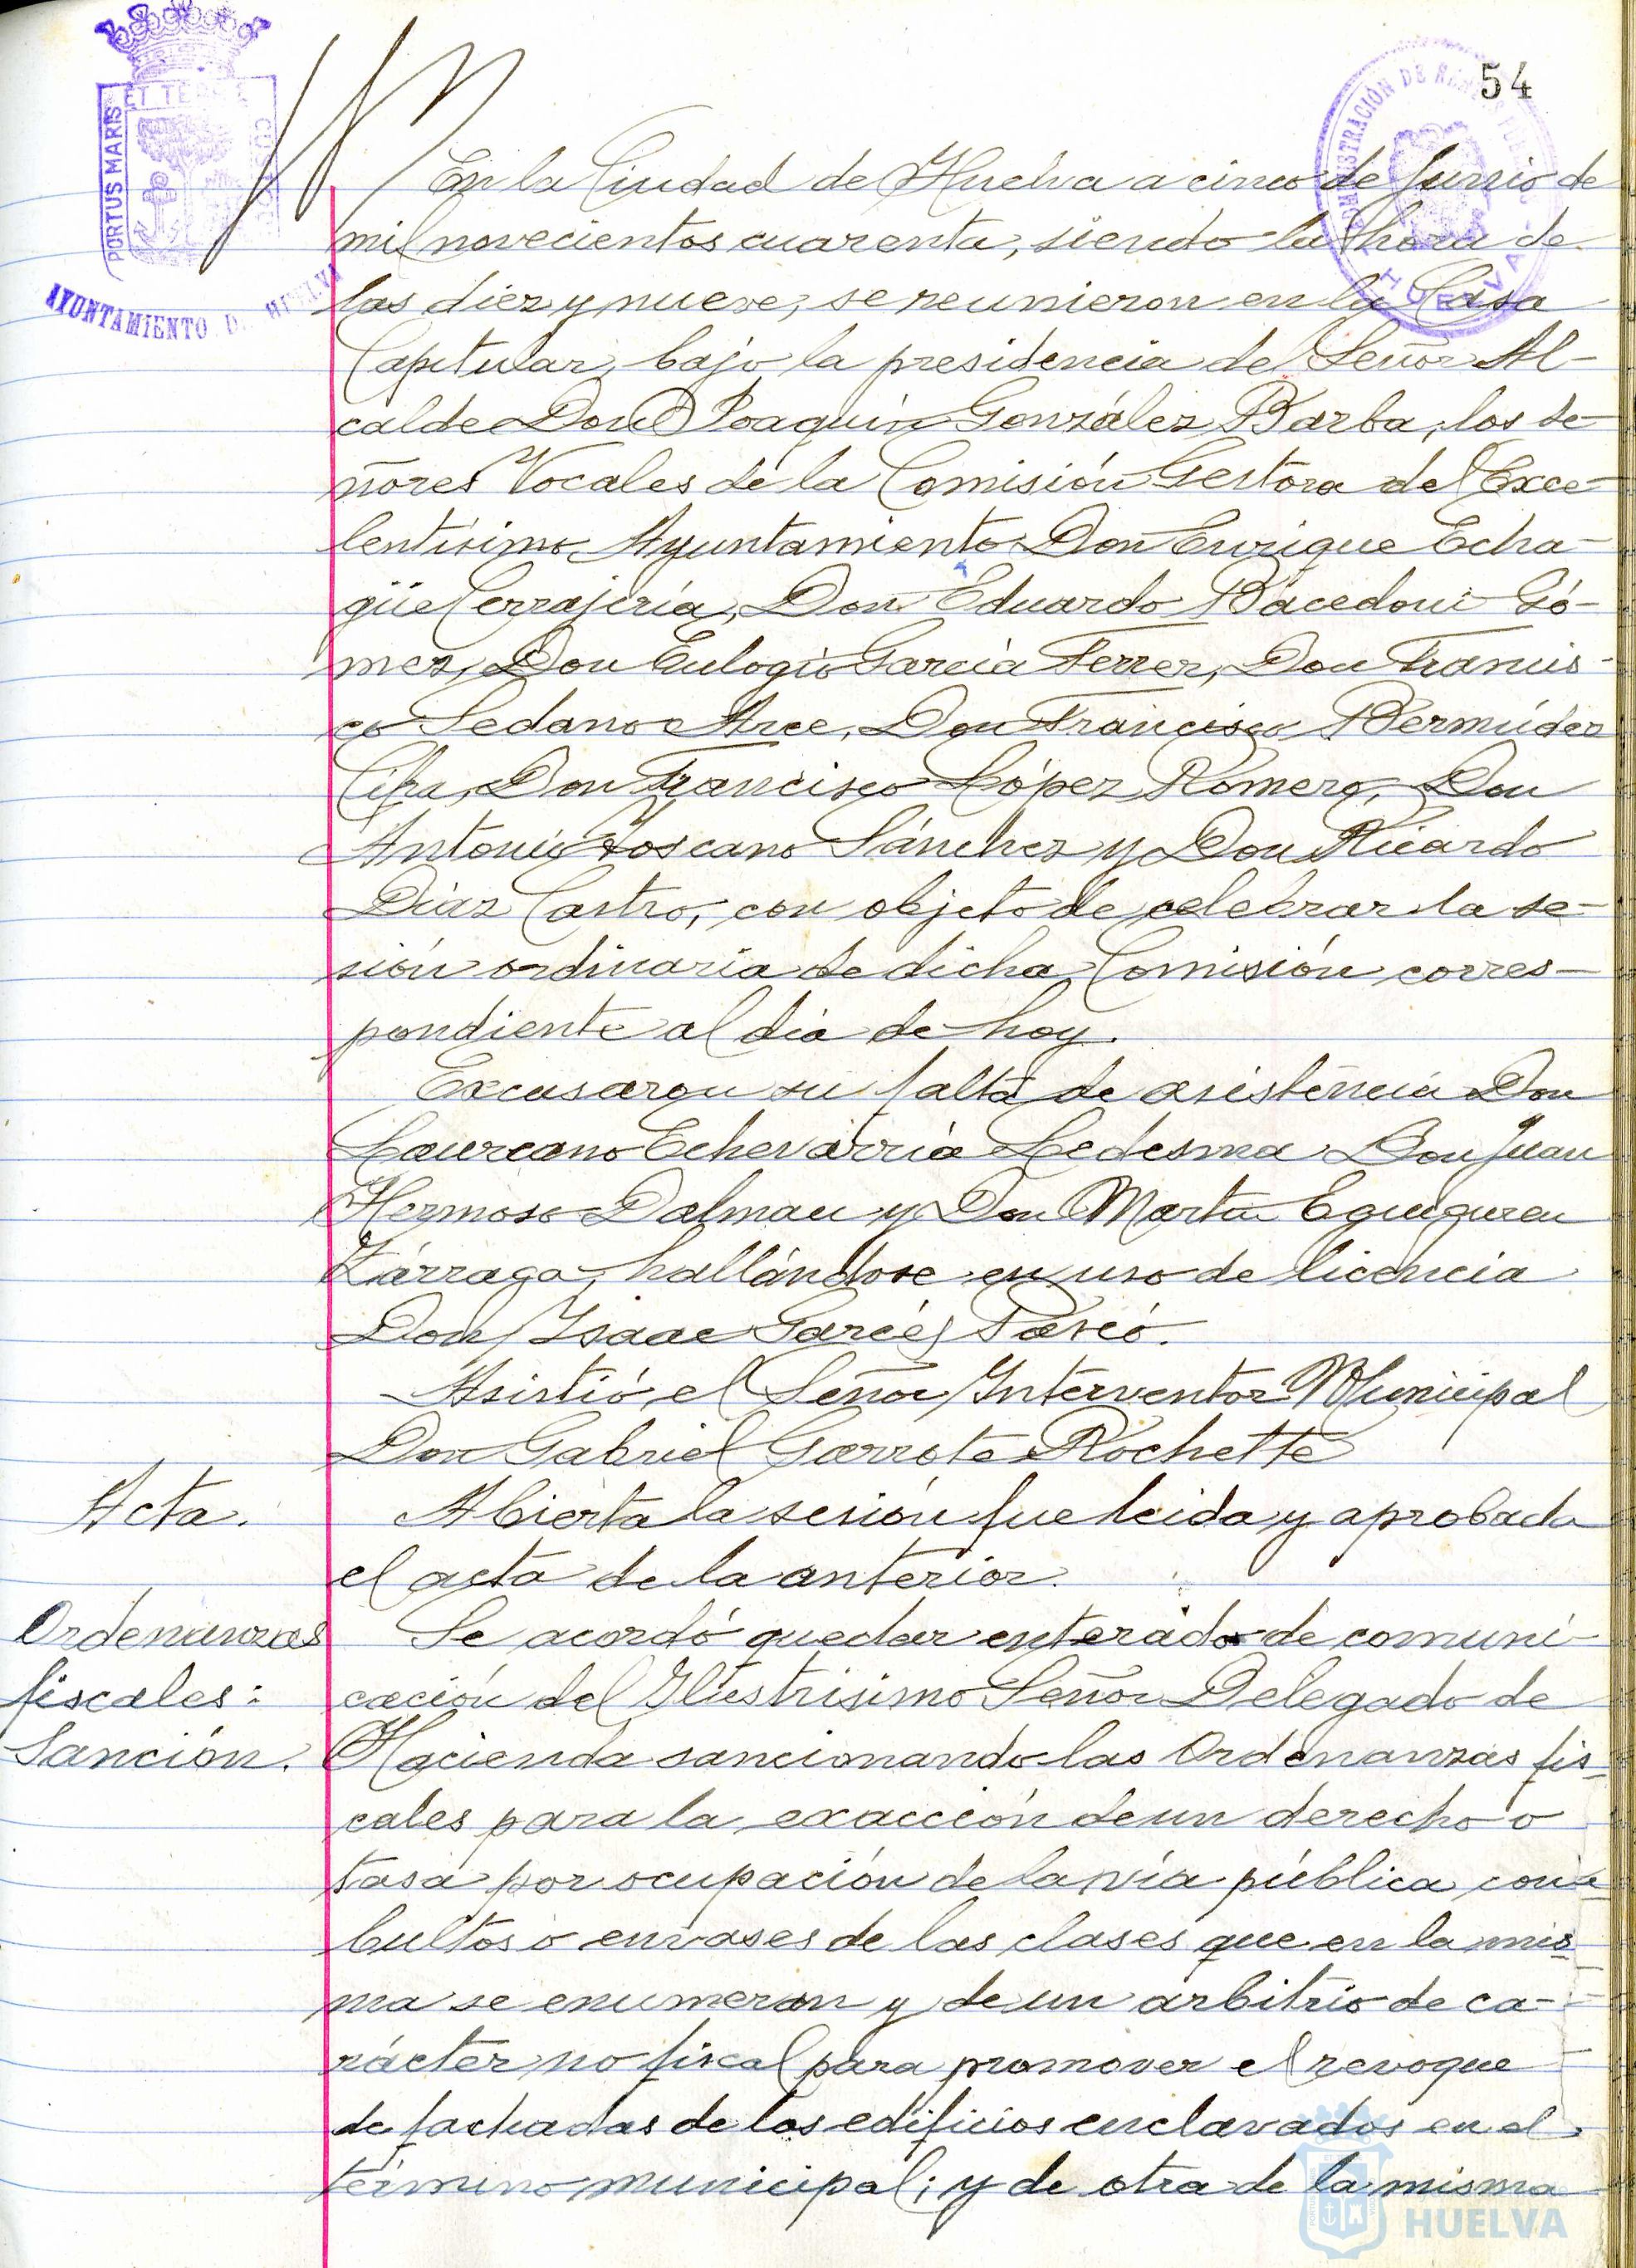 54
PORTUS MARIS
ET TERRE
AYUNTAMIENTO DE HUELVA
HUELVA
En la Ciudad de Huelva a cinco de Junio de
mil novecientos cuarenta, siendo la hora de
las diez y nueve, se reunieron en la Casa
Capitular, bajo la presidencia del Señor Al-
calde Don Joaquín González Barba, los se-
ñores Vocales de la Comisión Gestora del Exce-
lentísimo Ayuntamiento Don Enrique Echa-
güe Cerrajería, Don Eduardo Bacedoni Gó-
mez, Don Eulogio García Ferrer, Don Francis-
co Sedano Arce, Don Francisco Bermúdez
Don Francisco López Romero, Don
Antonio Toscano Sánchez y Don Ricardo
Díaz Castro, con objeto de celebrar la se-
sión ordinaria de dicha Comisión corres-
pondiente al día de hoy.
Excusaron su falta de asistencia Don
Laureano Echevarría Ledesma, Don Juan
Hermoso Dalmau y Don Martín Eguiguren
Zárraga, hallándose en uso de licencia
Don Isaac Garcés
Asistió el Señor Interventor Municipal
Don Gabriel Garrote Rochette
Acta. Abierta la sesión fue leida y aprobada
el acta de la anterior.
Ordenanzas Se acordó quedar enterado de comuni-
fiscales: cación del Ilustrisimo Señor Delegado de
Sanción. Hacienda sancionando las Ordenanzas fis-
cales para la exacción de un derecho o
tasa por ocupación de la vía pública con
bultos o envases de las clases que en la mis-
ma se enumeran y de un arbitrio de ca-
rácter no fiscal para promover el revoque
de fachadas de los edificios enclavados en el
término municipal; y de otra de la misma
HUELVA